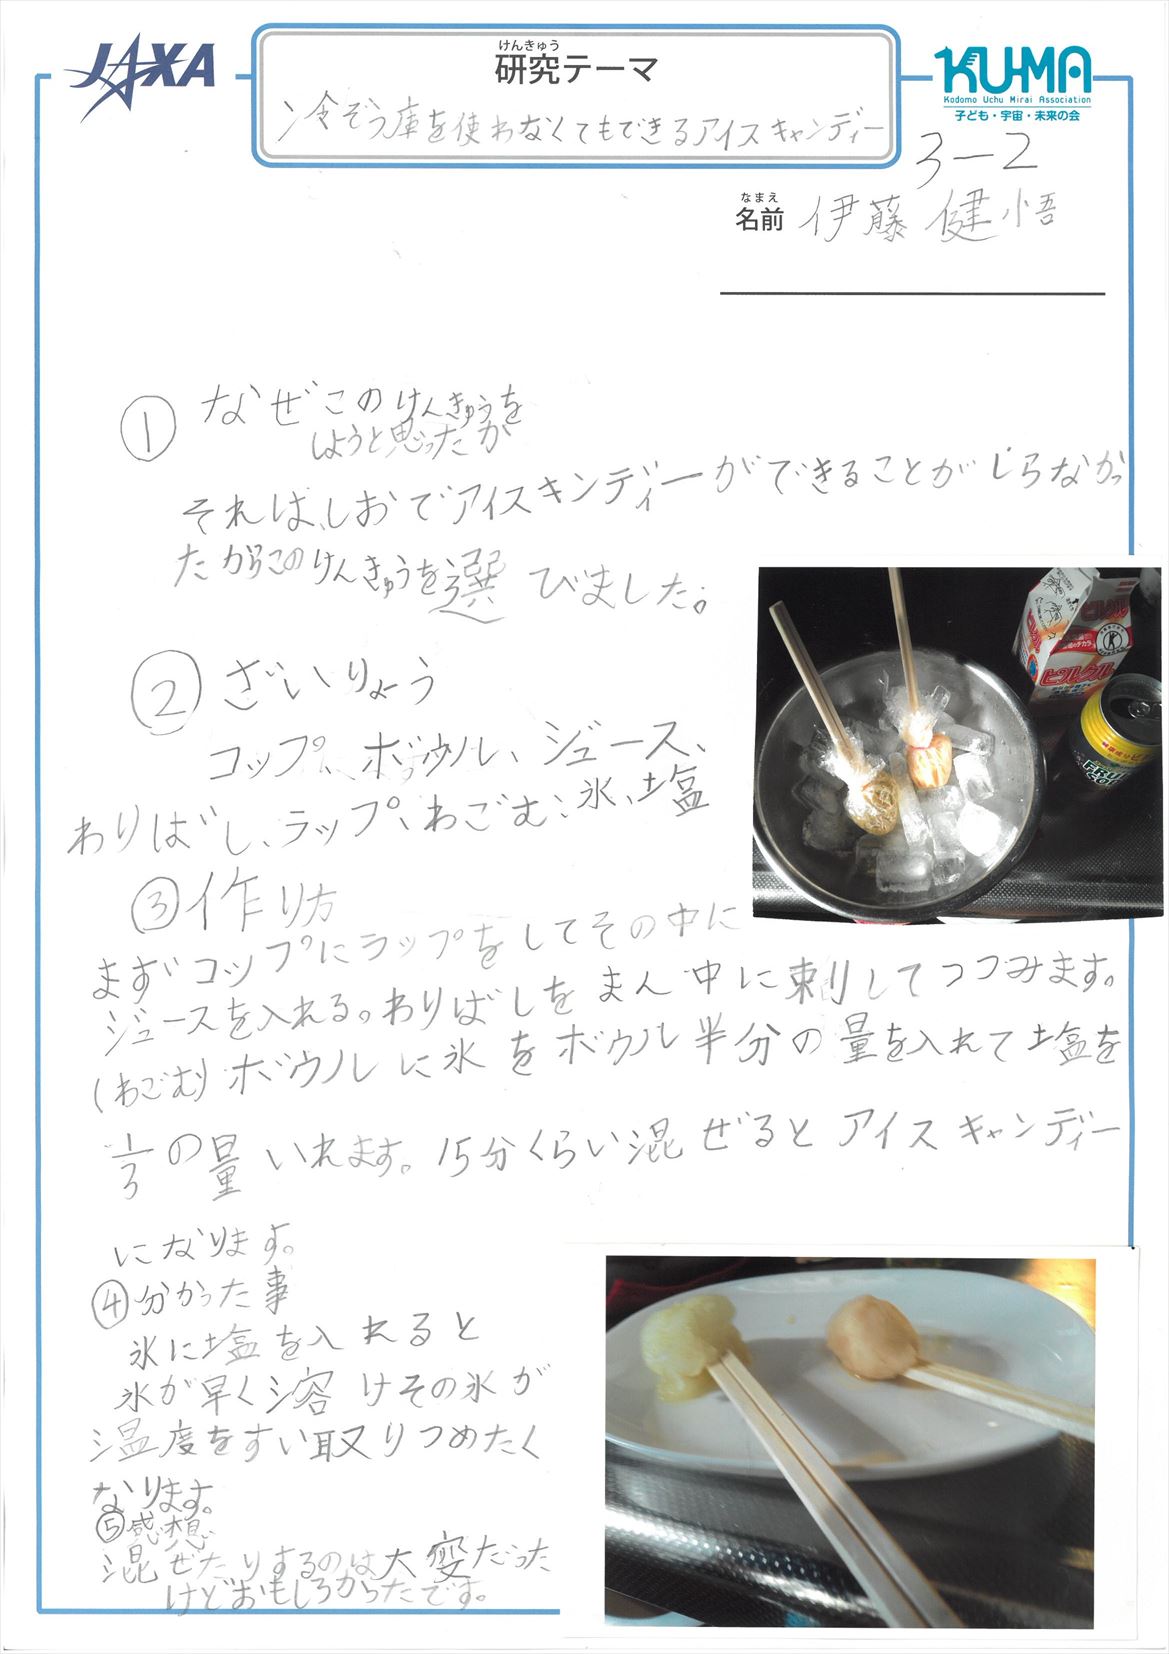 JAXA
けんきゅう
研究テーマ
冷ぞう庫を使わなくてもできるアイスキャンディー
KU-MA
Kodomo Uchu Mirai Association
子ども・宇宙・未来の会
3-2
なまえ
名前 伊藤 健悟
① なぜこのけんきゅうを
しようと思ったか
それは、しおでアイスキンディーができることがしらなかっ
たからこのけんきゅうを選びました。
② ざいりょう
コップ、ボウル、ジュース、
わりばし、ラップ、わごむ、氷、塩
③作り方
まずコップにラップをしてその中に
ジュースを入れる。わりばしをまん中に刺してつつみます。
(わごむ)ボウルに氷をボウル半分の量を入れて塩を
1/3の量いれます。15分くらい混ぜるとアイスキャンディー
になります。
④分かった事
氷に塩を入れると
氷が早く溶けその氷が
温度をすい取りつめたく
なります。
⑤感想
混ぜたりするのは大変だった
けどおもしろかったです。
ピルクル